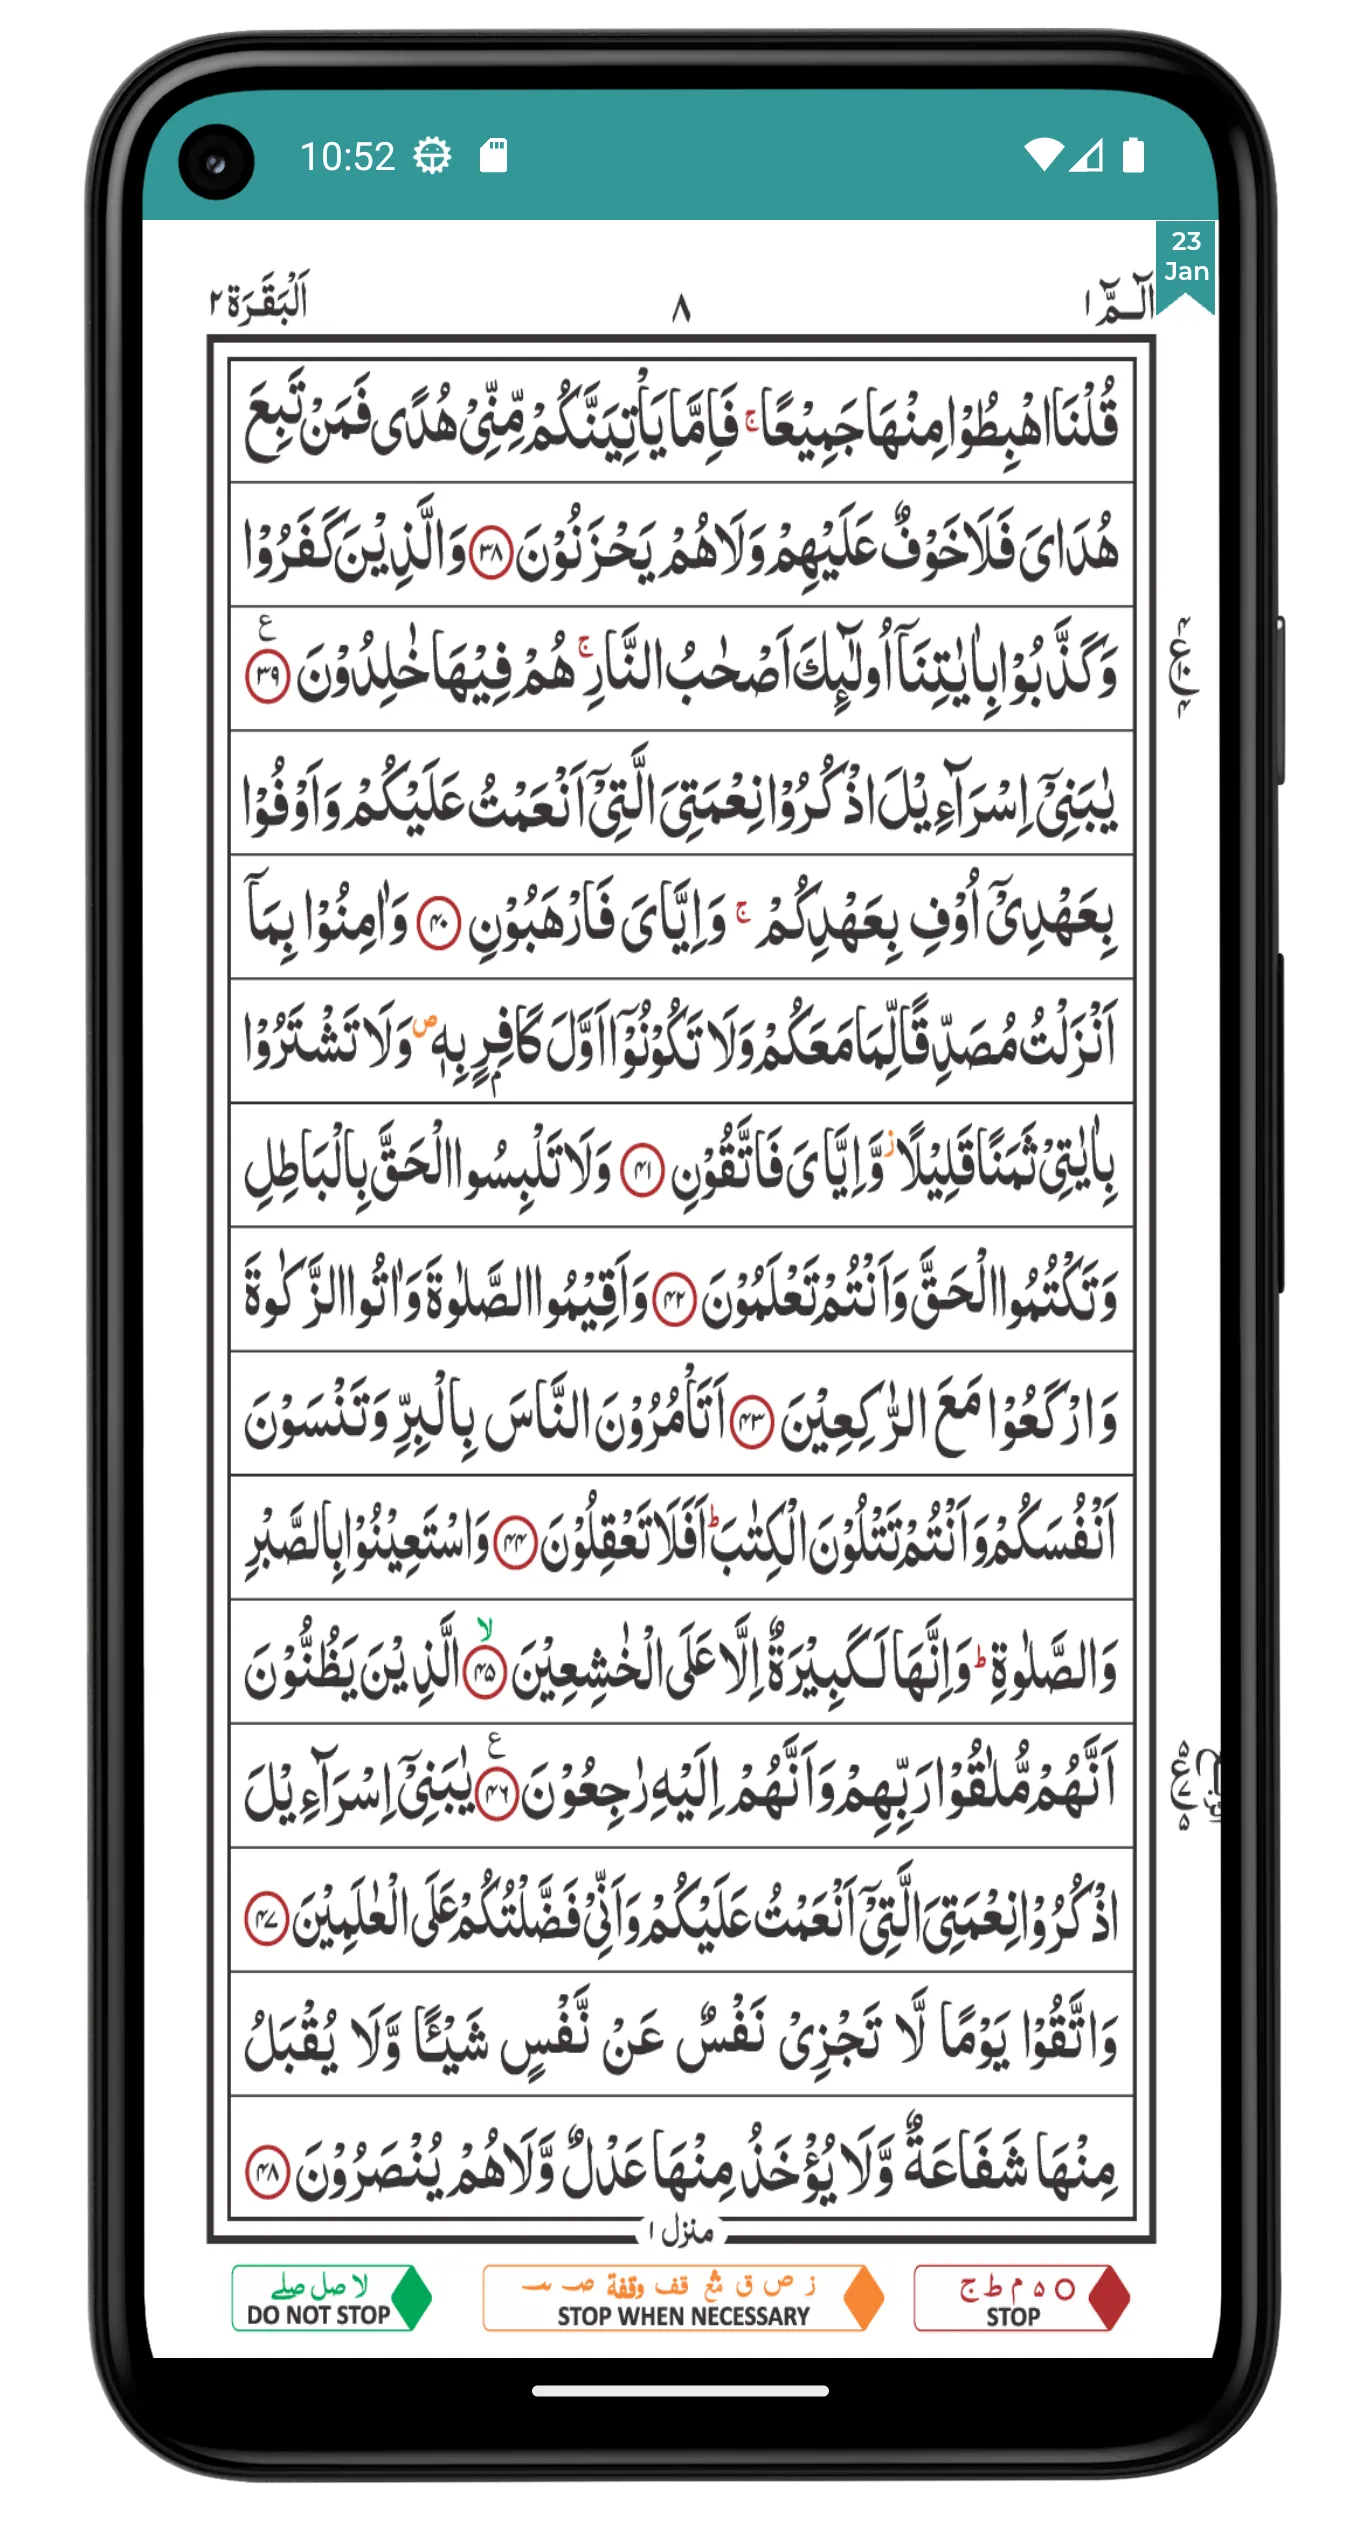 10:52
23
Jan
الٓـمّٓ ١
٨
اَلْبَقَرَة ٢
قُلْنَا اهْبِطُوْا مِنْهَا جَمِيْعًا ۚ فَاِمَّا يَاْتِيَنَّكُمْ مِّنِّىْ هُدًى فَمَنْ تَبِعَ
هُدَاىَ فَلَا خَوْفٌ عَلَيْهِمْ وَلَا هُمْ يَحْزَنُوْنَ ۳۸ وَالَّذِيْنَ كَفَرُوْا
وَكَذَّبُوْا بِاٰيٰتِنَآ اُولٰٓئِكَ اَصْحٰبُ النَّارِ ۚ هُمْ فِيْهَا خٰلِدُوْنَ ۳۹ ع
يٰبَنِىْٓ اِسْرَآءِيْلَ اذْكُرُوْا نِعْمَتِىَ الَّتِىْٓ اَنْعَمْتُ عَلَيْكُمْ وَاَوْفُوْا
بِعَهْدِىْٓ اُوْفِ بِعَهْدِكُمْ ۚ وَاِيَّاىَ فَارْهَبُوْنِ ۴۰ وَاٰمِنُوْا بِمَآ
اَنْزَلْتُ مُصَدِّقًا لِّمَا مَعَكُمْ وَلَا تَكُوْنُوْٓا اَوَّلَ كَافِرٍۭ بِهٖ ص وَلَا تَشْتَرُوْا
بِاٰيٰتِىْ ثَمَنًا قَلِيْلًا ز وَّاِيَّاىَ فَاتَّقُوْنِ ۴۱ وَلَا تَلْبِسُوا الْحَقَّ بِالْبَاطِلِ
وَتَكْتُمُوا الْحَقَّ وَاَنْتُمْ تَعْلَمُوْنَ ۴۲ وَاَقِيْمُوا الصَّلٰوةَ وَاٰتُوا الزَّكٰوةَ
وَارْكَعُوْا مَعَ الرّٰكِعِيْنَ ۴۳ اَتَاْمُرُوْنَ النَّاسَ بِالْبِرِّ وَتَنْسَوْنَ
اَنْفُسَكُمْ وَاَنْتُمْ تَتْلُوْنَ الْكِتٰبَ ط اَفَلَا تَعْقِلُوْنَ ۴۴ وَاسْتَعِيْنُوْا بِالصَّبْرِ
وَالصَّلٰوةِ ط وَاِنَّهَا لَكَبِيْرَةٌ اِلَّا عَلَى الْخٰشِعِيْنَ ۴۵ لا الَّذِيْنَ يَظُنُّوْنَ
اَنَّهُمْ مُّلٰقُوْا رَبِّهِمْ وَاَنَّهُمْ اِلَيْهِ رٰجِعُوْنَ ۴۶ ع يٰبَنِىْٓ اِسْرَآءِيْلَ
اذْكُرُوْا نِعْمَتِىَ الَّتِىْٓ اَنْعَمْتُ عَلَيْكُمْ وَاَنِّىْ فَضَّلْتُكُمْ عَلَى الْعٰلَمِيْنَ ۴۷
وَاتَّقُوْا يَوْمًا لَّا تَجْزِىْ نَفْسٌ عَنْ نَّفْسٍ شَيْـًٔا وَّلَا يُقْبَلُ
مِنْهَا شَفَاعَةٌ وَّلَا يُؤْخَذُ مِنْهَا عَدْلٌ وَّلَا هُمْ يُنْصَرُوْنَ ۴۸
منزل ١
O ۵ م ط ج
STOP
ز ص ق قف وقفة
STOP WHEN NECESSARY
لا صل صلے
DO NOT STOP